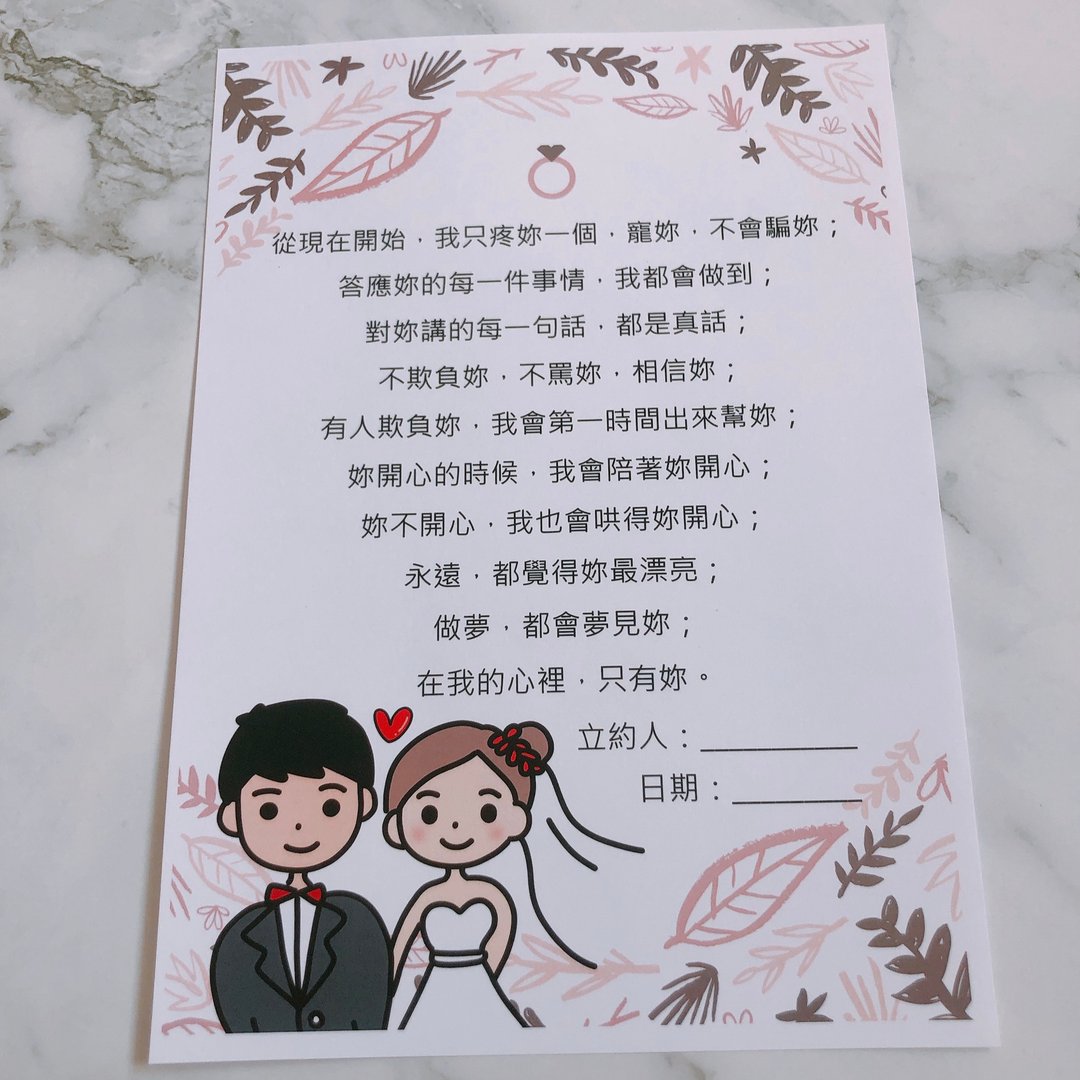 從現在開始，我只疼妳一個，寵妳，不會騙妳；
答應妳的每一件事情，我都會做到；
對妳講的每一句話，都是真話；
不欺負妳，不罵妳，相信妳；
有人欺負妳，我會第一時間出來幫妳；
妳開心的時候，我會陪著妳開心；
妳不開心，我也會哄得妳開心；
永遠，都覺得妳最漂亮；
做夢，都會夢見妳；
在我的心裡，只有妳。
立約人：__________
日期：________